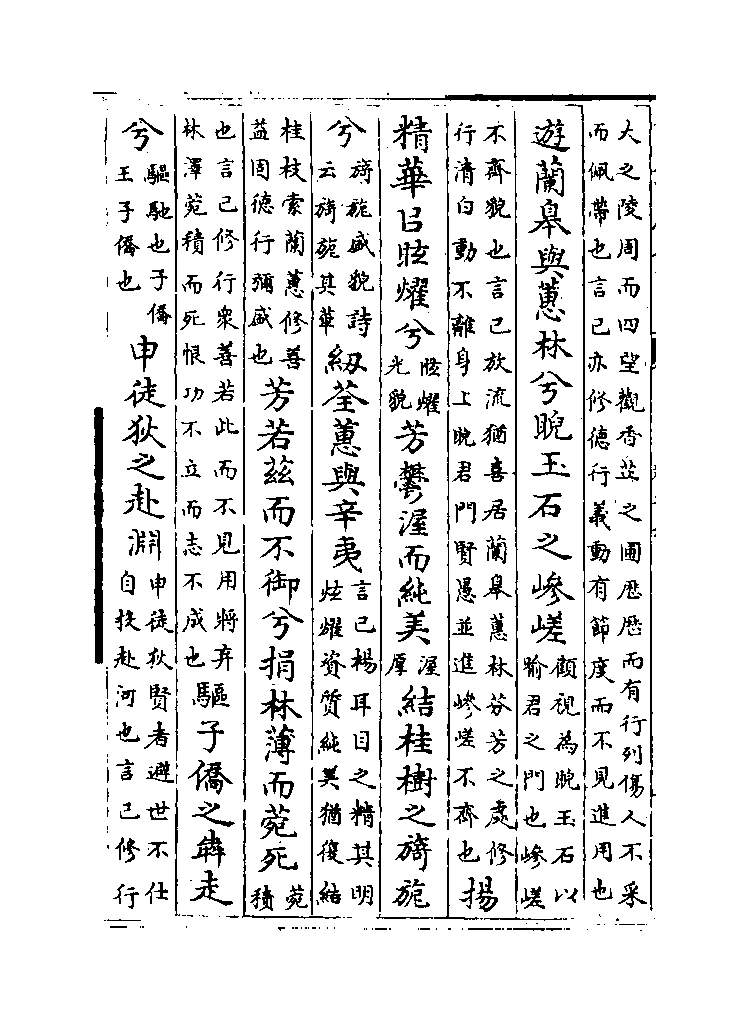 大之陵周而四望觀香芷之圃歷歷而有行列傷人不采
而佩帶也言己亦修德行義動有節度而不見進用也
遊蘭皋與蕙林兮睨玉石之嵾嵯顧視為睨玉石以喻君之門也嵾嵯
不齊貌也言己放流猶喜居蘭皋蕙林芬芳之處修行清白動不離身上睨君門賢愚並進嵾嵯不齊也揚
精華㠯眩燿兮眩燿光貌芳鬱渥而純美渥厚結桂樹之旖旎
兮旖旎盛貌詩云旖旎其華紉荃蕙與辛夷言己楊耳目之精其明炫燿資質純美猶復結
桂枝索蘭蕙修善益固德行彌盛也芳若茲而不御兮捐林薄而菀死菀積
也言己修行衆善若此而不見用將弃林澤菀積而死恨功不立而志不成也驅子僑之犇走
兮驅馳也子僑王子僑也申徒狄之赴淵申徒狄賢者避世不仕自投赴河也言己修行